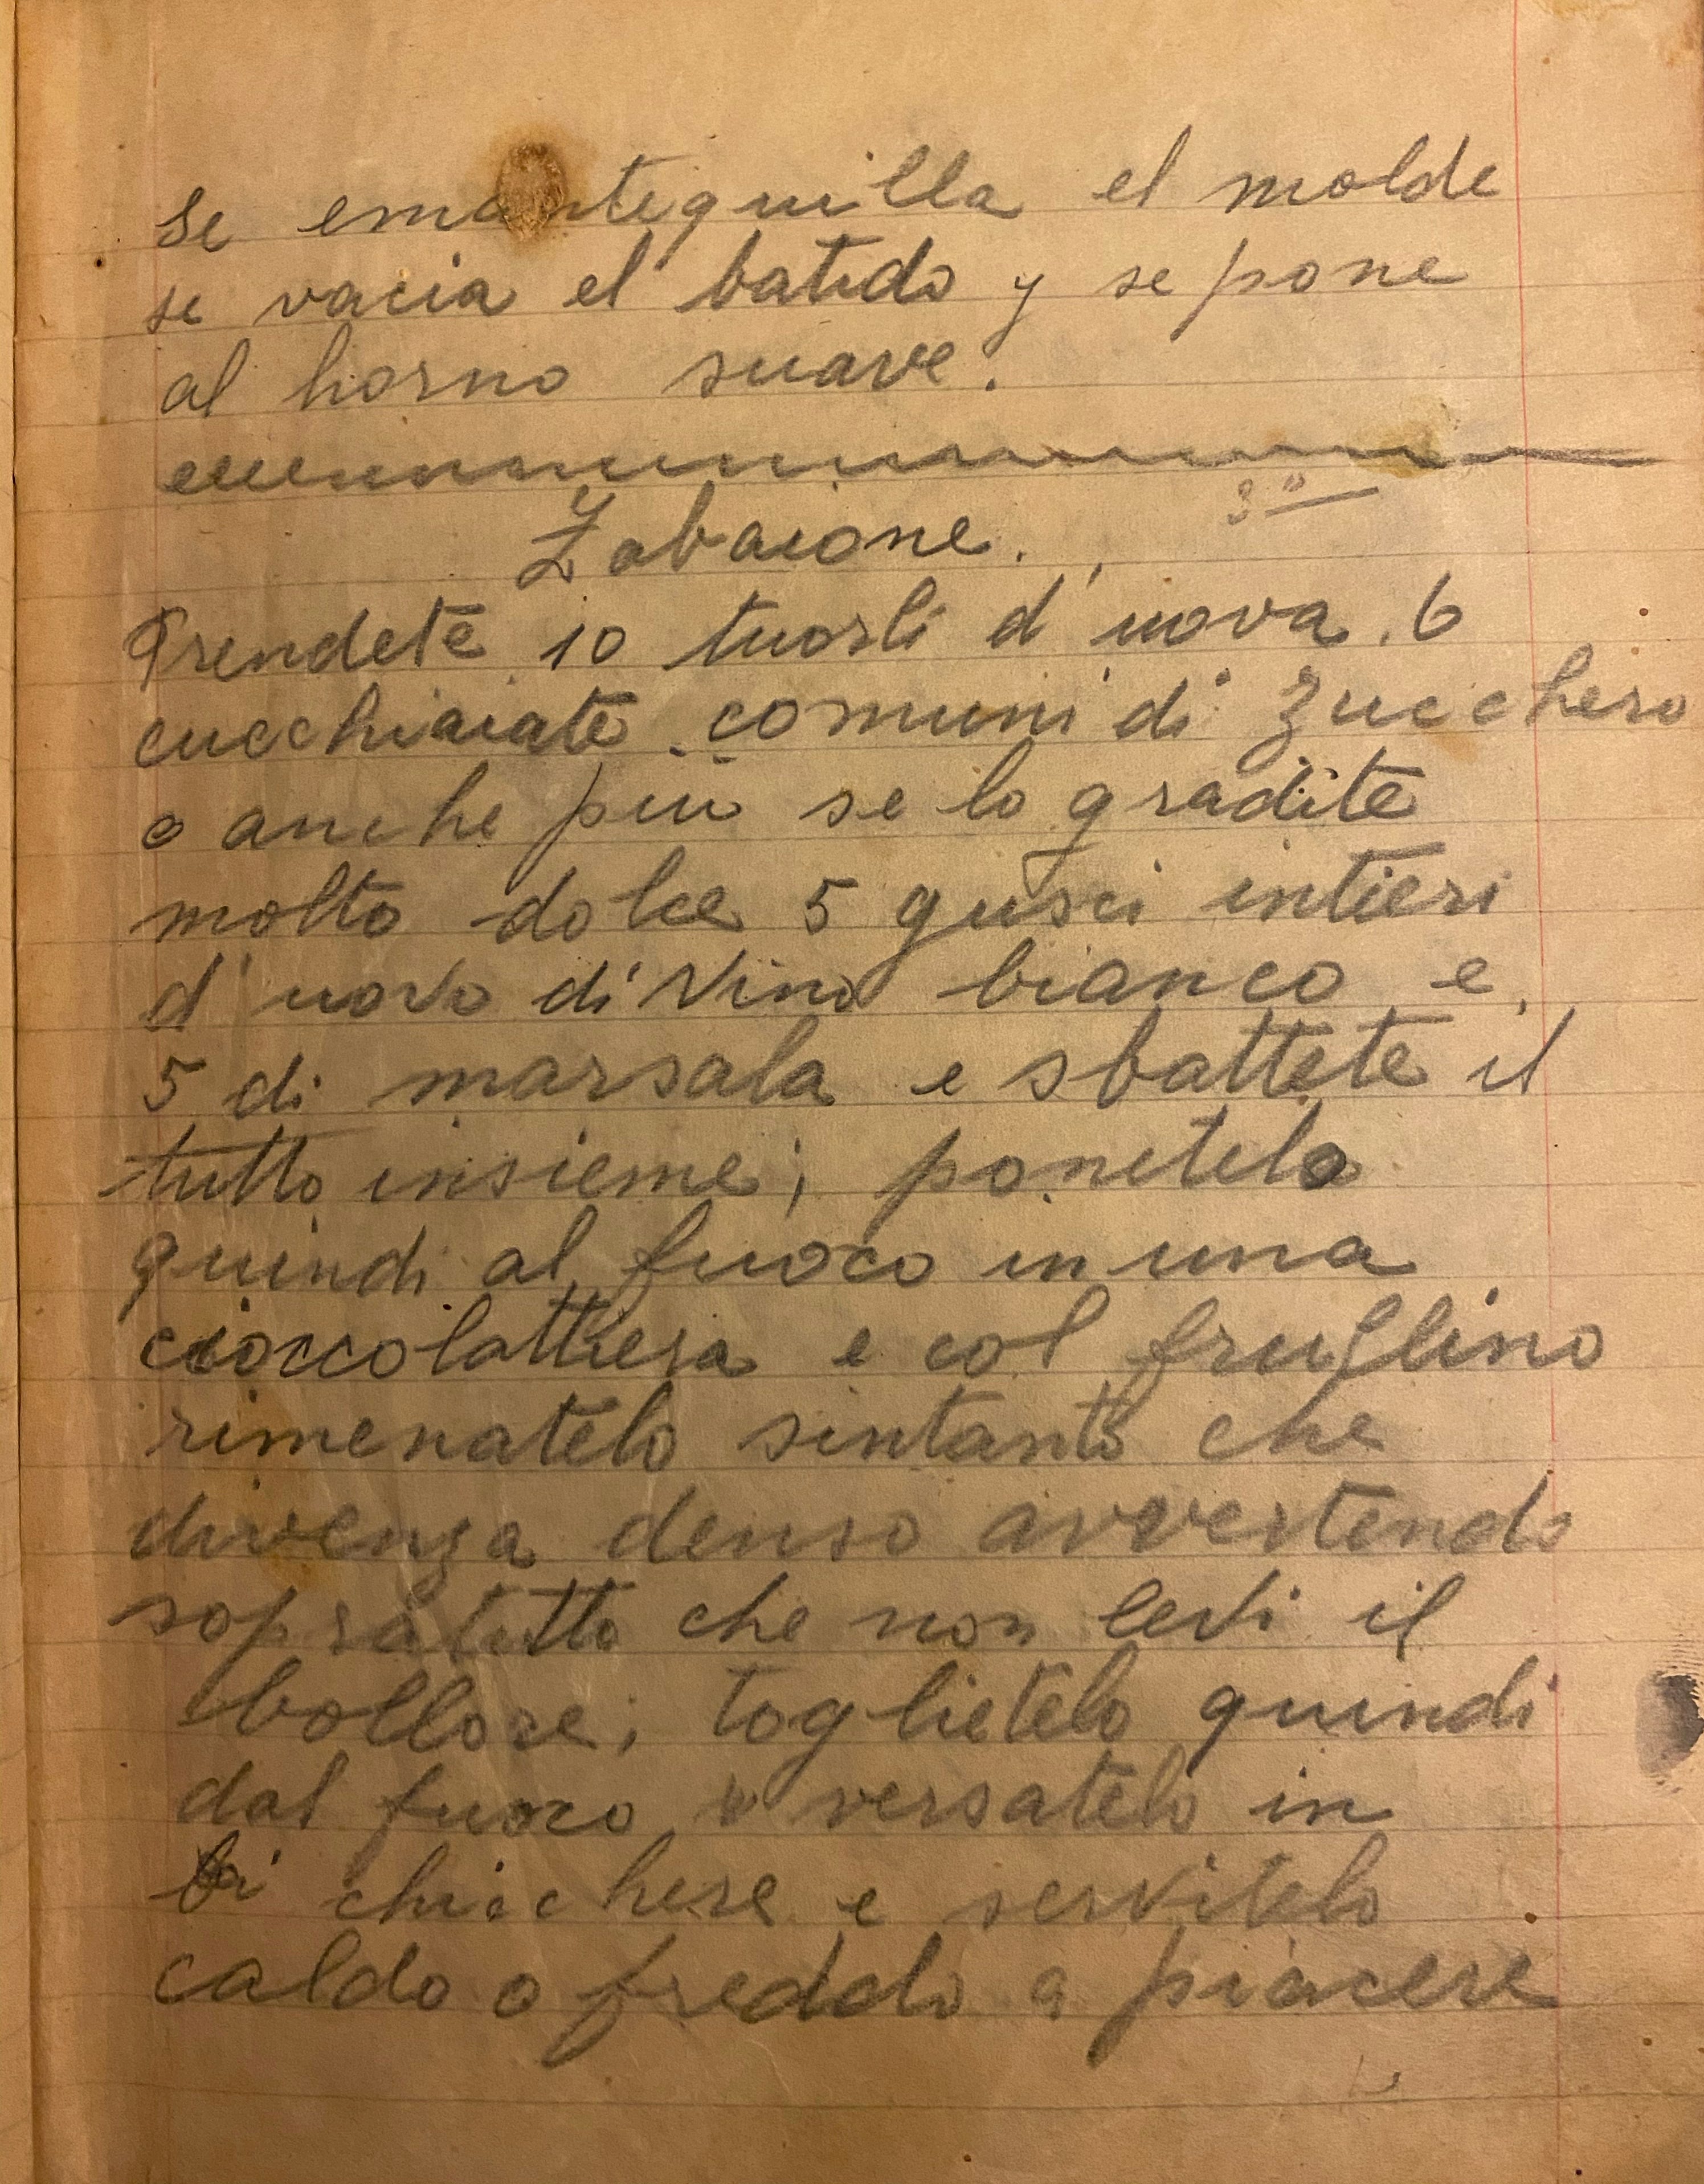 se emantequilla el molde
se vacia el batido y se pone
al horno suave.
Zabaione.
Prendete 10 tuorli d'uova. 6
cucchiaiate comuni di zucchero
o anche più se lo gradite
molto dolce 5 gusci intieri
d'uovo di vino bianco e
5 di marsala e sbattete il
tutto insieme; ponetelo
quindi al fuoco in una
cioccolattiera e col frullino
rimenatelo sintanto che
divenga denso avvertendo
sopratutto che non levi il
bollore; toglietelo quindi
dal fuoco e versatelo in
chicchere e servitelo
caldo o freddo a piacere